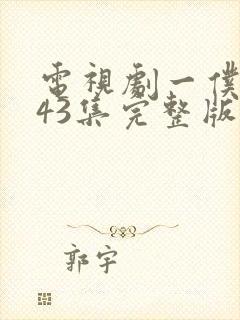 電視劇一僕
43集完整版
郭宇